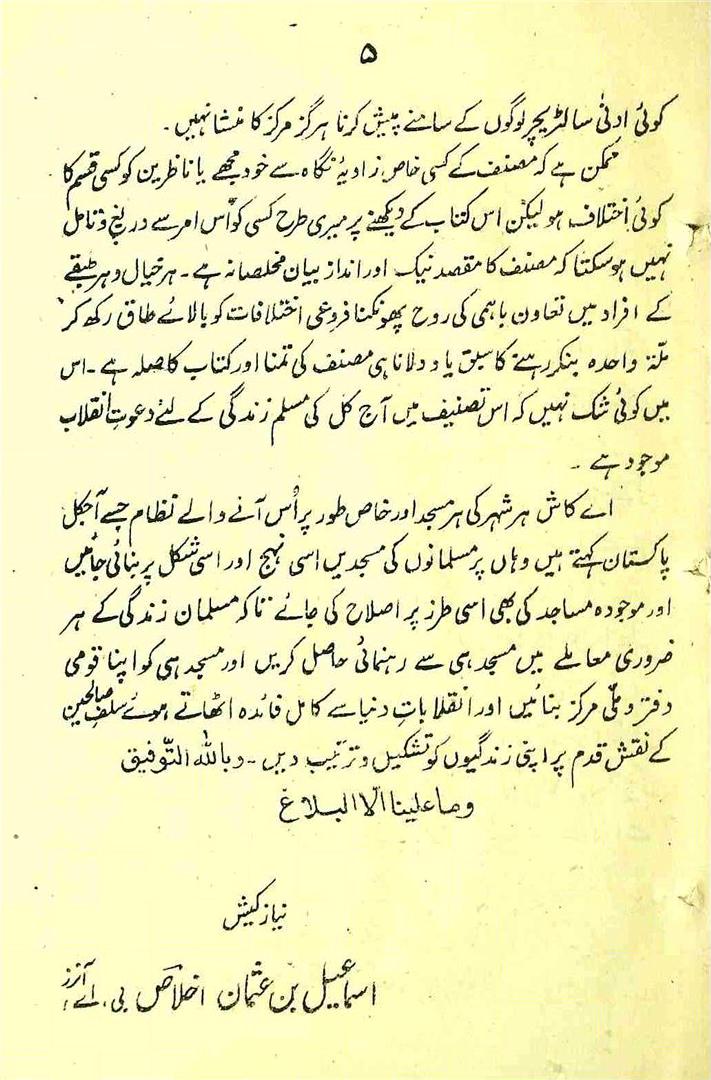 ۵
کوئی ادنیٰ سا لٹریچر لوگوں کے سامنے پیش کرنا ہرگز مرکز کا منشا نہیں۔
ممکن ہے کہ مصنف کے کسی خاص زاویۂ نگاہ سے خود مجھے یا ناظرین کو کسی قسم کا
کوئی اختلاف ہو لیکن اس کتاب کے دیکھنے پر میری طرح کسی کو اس امر سے دریغ و تامل
نہیں ہو سکتا کہ مصنف کا مقصد نیک اور انداز بیان مخلصانہ ہے۔ ہر خیال و ہر طبقے
کے افراد میں تعاون باہمی کی روح پھونکنا فروعی اختلافات کو بالائے طاق رکھ کر
ملّۃ واحدہ بنکر رہنے کا سبق یاد دلانا ہی مصنف کی تمنا اور کتاب کا صلہ ہے۔ اس
میں کوئی شک نہیں کہ اس تصنیف میں آج کل کی مسلم زندگی کے لئے دعوتِ انقلاب
موجود ہے ۔
اے کاش ہر شہر کی ہر مسجد اور خاص طور پر اُس آنے والے نظام جسے آجکل
پاکستان کہتے ہیں وہاں پر مسلمانوں کی مسجدیں اسی نہج اور اسی شکل پر بنائی جائیں
اور موجودہ مساجد کی بھی اسی طرز پر اصلاح کی جائے تاکہ مسلمان زندگی کے ہر
ضروری معاملے میں مسجد ہی سے رہنمائی حاصل کریں اور مسجد ہی کو اپنا قومی
دفتر و ملّی مرکز بنائیں اور انقلاباتِ دنیا سے کامل فائدہ اٹھاتے ہوئے سلف صالحین
کے نقش قدم پر اپنی زندگیوں کو تشکیل و ترتیب دیں۔ وباللہ التّوفیق
وما علینا الا البلاغ
نیاز کیش
اسماعیل بن عثمان اخلاص بی، اے، آنرز